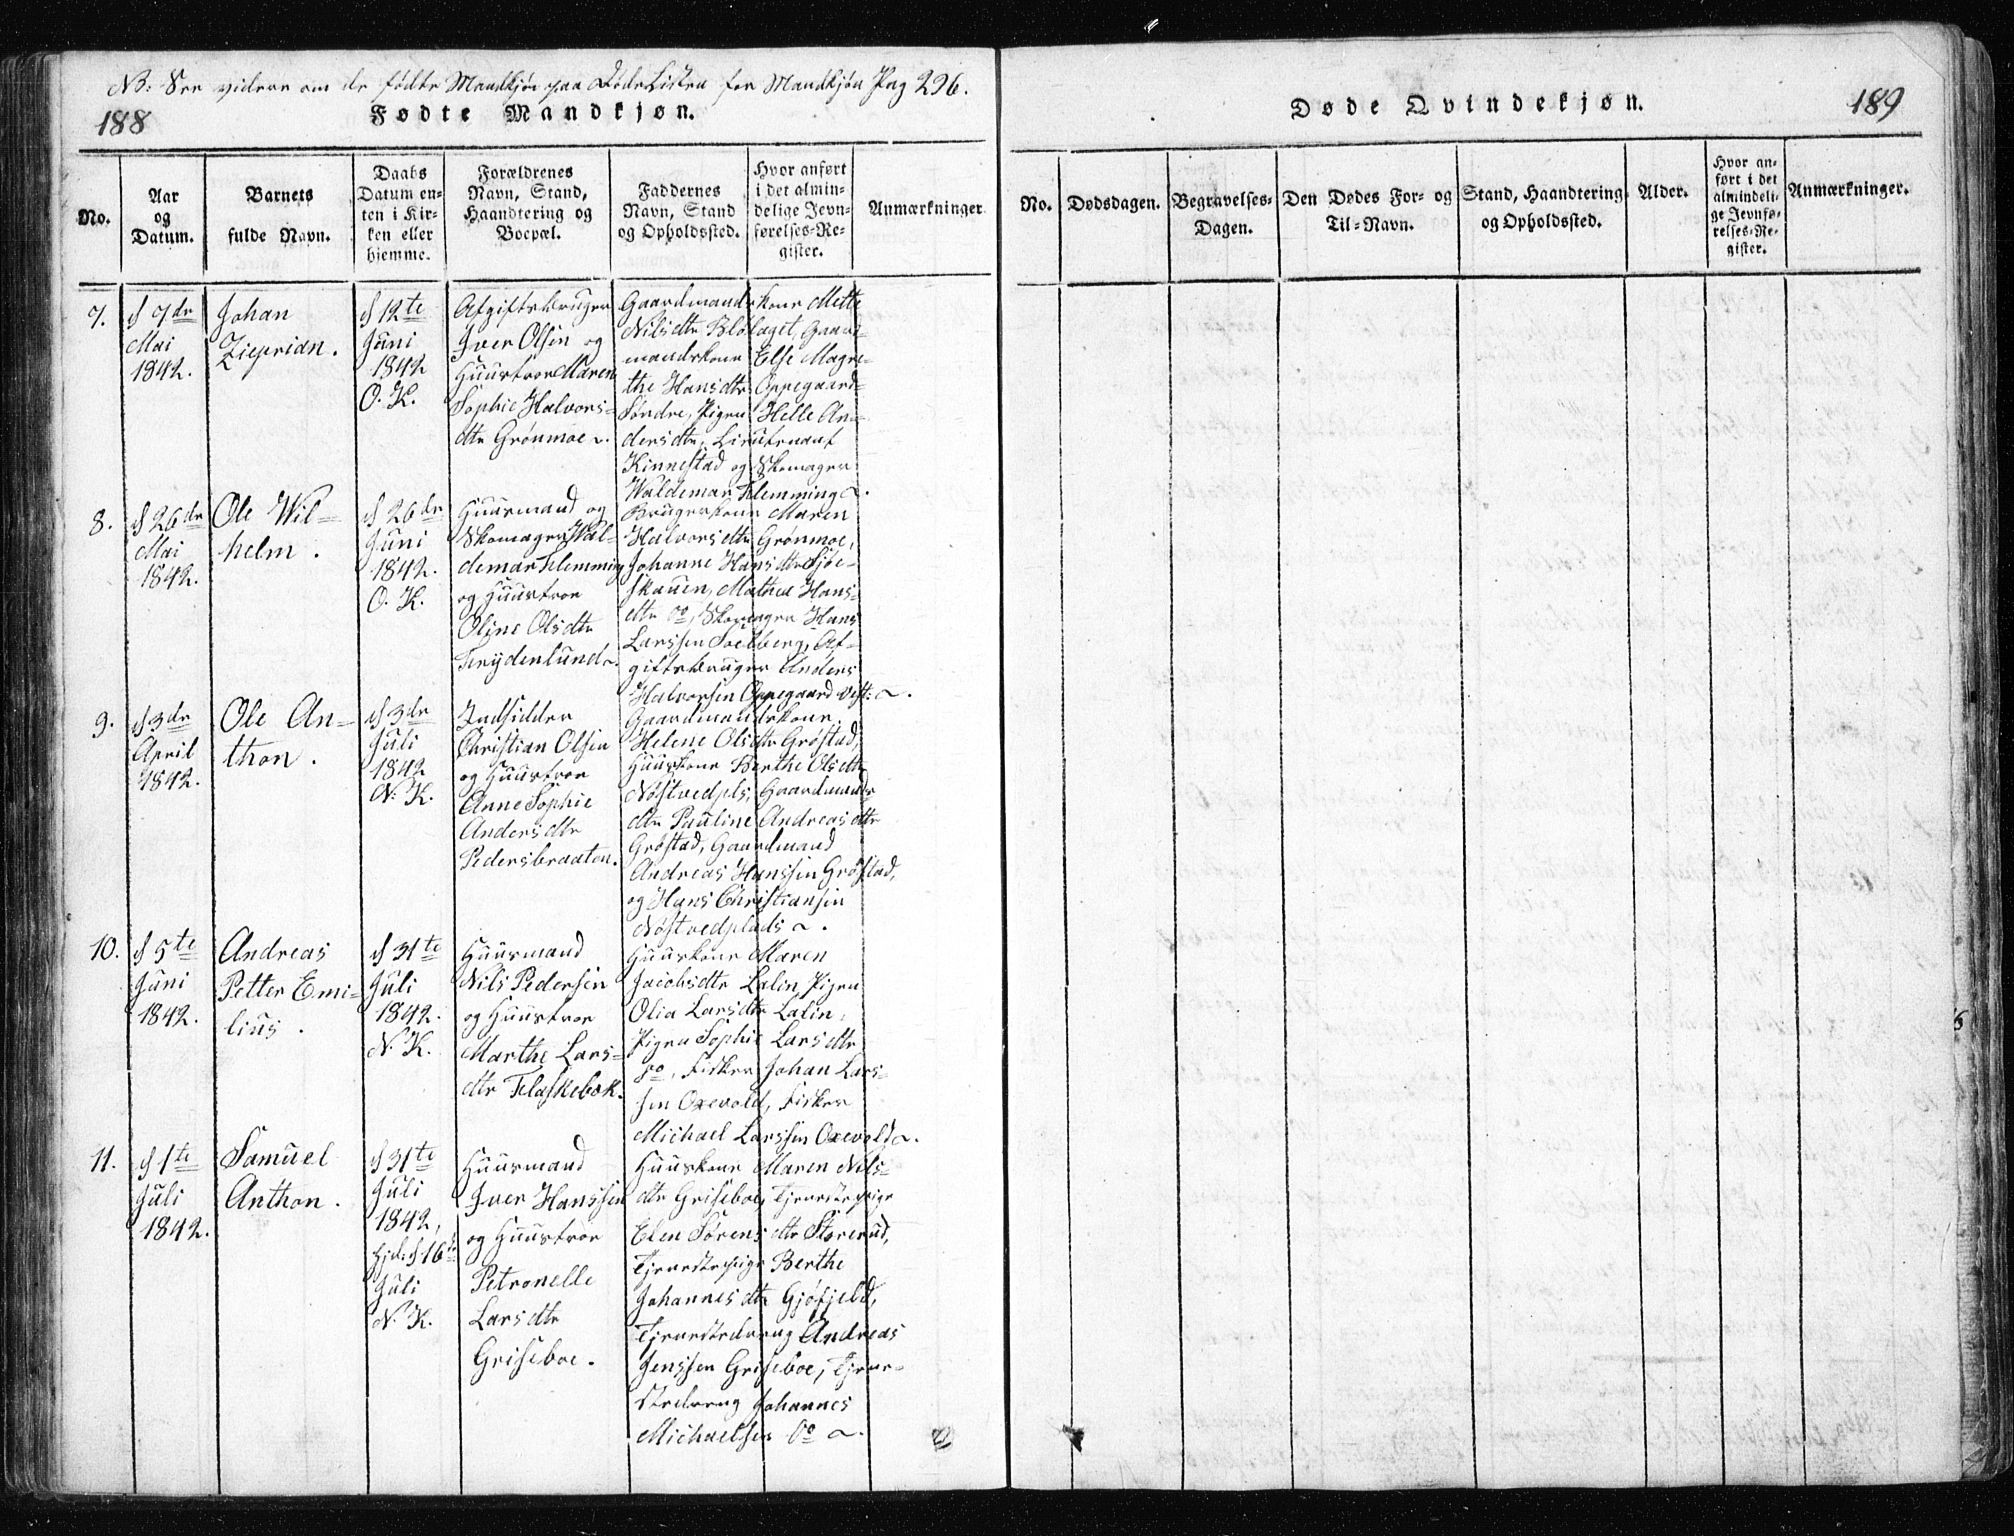 NB: See videre om de fødte Mandkjøn paa FødeListen for Mandkjøn Pag 296.
188
Fødte Mandkjøn.
No.
Aar
og
Datum.
Barnets
fulde Navn.
Daabs
Datum en-
ten i Kir-
ken eller
hjemme.
Forældrenes
Navn, Stand,
Haandtering og
Boepæl.
Faddernes
Navn, Stand
og Opholdssted.
Hvor anført
i det almin-
delige Jevn-
førelses-Re-
gister.
Anmærkninger
7.
d 7de
Mai
1842.
Johan
Zieprian.
d 12te
Juni
1842
O. K.
Afgiftsbruger
Iver Olsen og
Huustroe Maren
Sophie Halvors-
dtr Grönmoe
Gaardmandskone Mette
Nilsdtr Blölaget, Gaard-
mandskone Else Magre-
the Hansdtr Oppegaard
Söndre, Pigen Helle An-
dersdtr, Lieutenant
Kinnestad og Skomager
Waldemar Flemming
8.
d 26de
Mai
1842.
Ole Wil-
helm.
d 26de
Juni
1842.
O. K.
Huusmand og
Skomager Wal-
demar Flemming
og Huustroe
Oline Olsdtr
Frydenlund
Brugerkone Maren
Halvorsdtr Grönmoe,
Johanne Hansdtr Sjöe-
skauen, Mathea Hans-
dtr do, Skomager Hans
Larssen Soelberg, Af-
giftsbruger Anders
Halvorsen Oppegaard vest:
9.
d 3de
April
1842.
Ole An-
thon.
d 3de
Juli
1842
N. K.
Indsidder
Christian Olsen
og Huustroe
Anne Sophie
Andersdtr
Pedersbraaten.
Gaardmandskone
Helene Olsdtr Gröstad,
Huuskone Berthe Olsdtr
Nöstvedpls, Gaardmands
dtr Pauline Andreasdtr
Gröstad, Gaardmand
Andreas Hanssen Gröstad,
og Hans Christiansen
Nöstvedplads
10.
d 5te
Juni
1842.
Andreas
Petter Emi-
lius.
d 31te
Juli
1842.
N. K.
Huusmand
Nils Pedersen
og Huustroe
Marthe Lars-
dtr Flaskebek.
Huuskone Maren
Jacobsdtr Lalin, Pigen
Olia Larsdtr Lalin,
Pigen Sophie Larsdtr
do, Fisker Johan Lars-
sen Oxevold, Fisker
Michael Larssen Oxevold
11.
d 1te
Juli
1842.
Samuel
Anthon.
d 31te
Juli
1842,
hjd: d 16de
Juli
N. K.
Huusmand
Iver Hanssen
og Huustroe
Petronelle
Larsdtr
Griseboe.
Huuskone Maren Nils-
dtr Griseboe, Tjenestepige
Elen Sörensdtr Storerud,
Tjenestepige Berthe
Johannesdtr Gjöfjeld,
Tjenestedreng Andreas
Jenssen Griseboe, Tjene-
stedreng Johannes
Michaelsen do
Døde Qvindekjøn.
189
No.
Dødsdagen.
Begravelses-
Dagen.
Den Dødes For- og
Til-Navn.
Stand, Haandtering
og Opholdssted.
Alder.
Hvor an-
ført i det
almindeli-
ge Jevnfø-
relses-Re-
gister.
Anmærkninger.